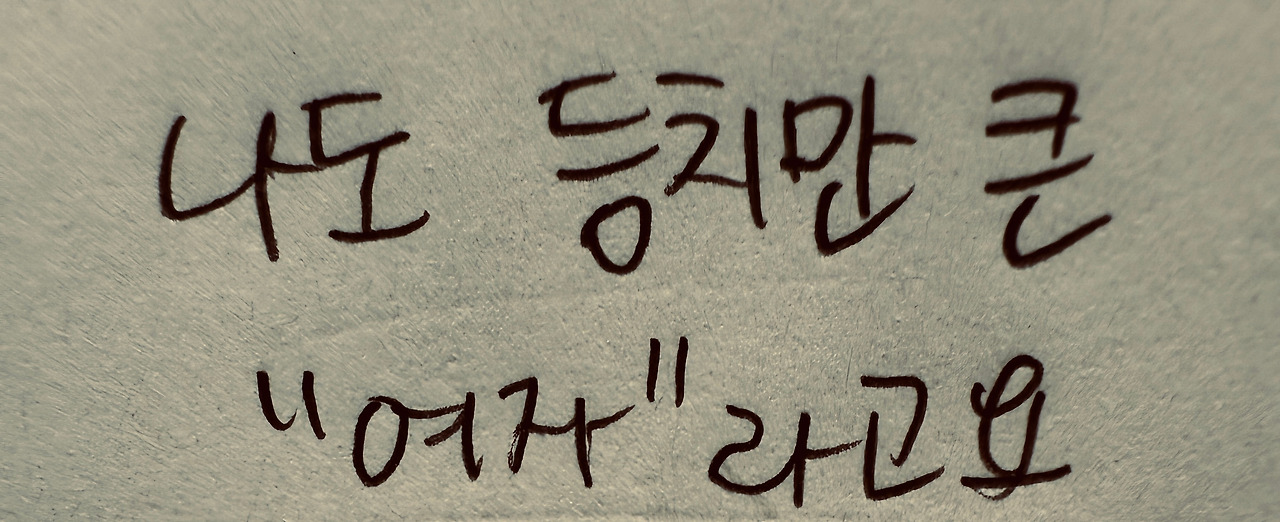 나도 등치만 큰
"여자"라고요